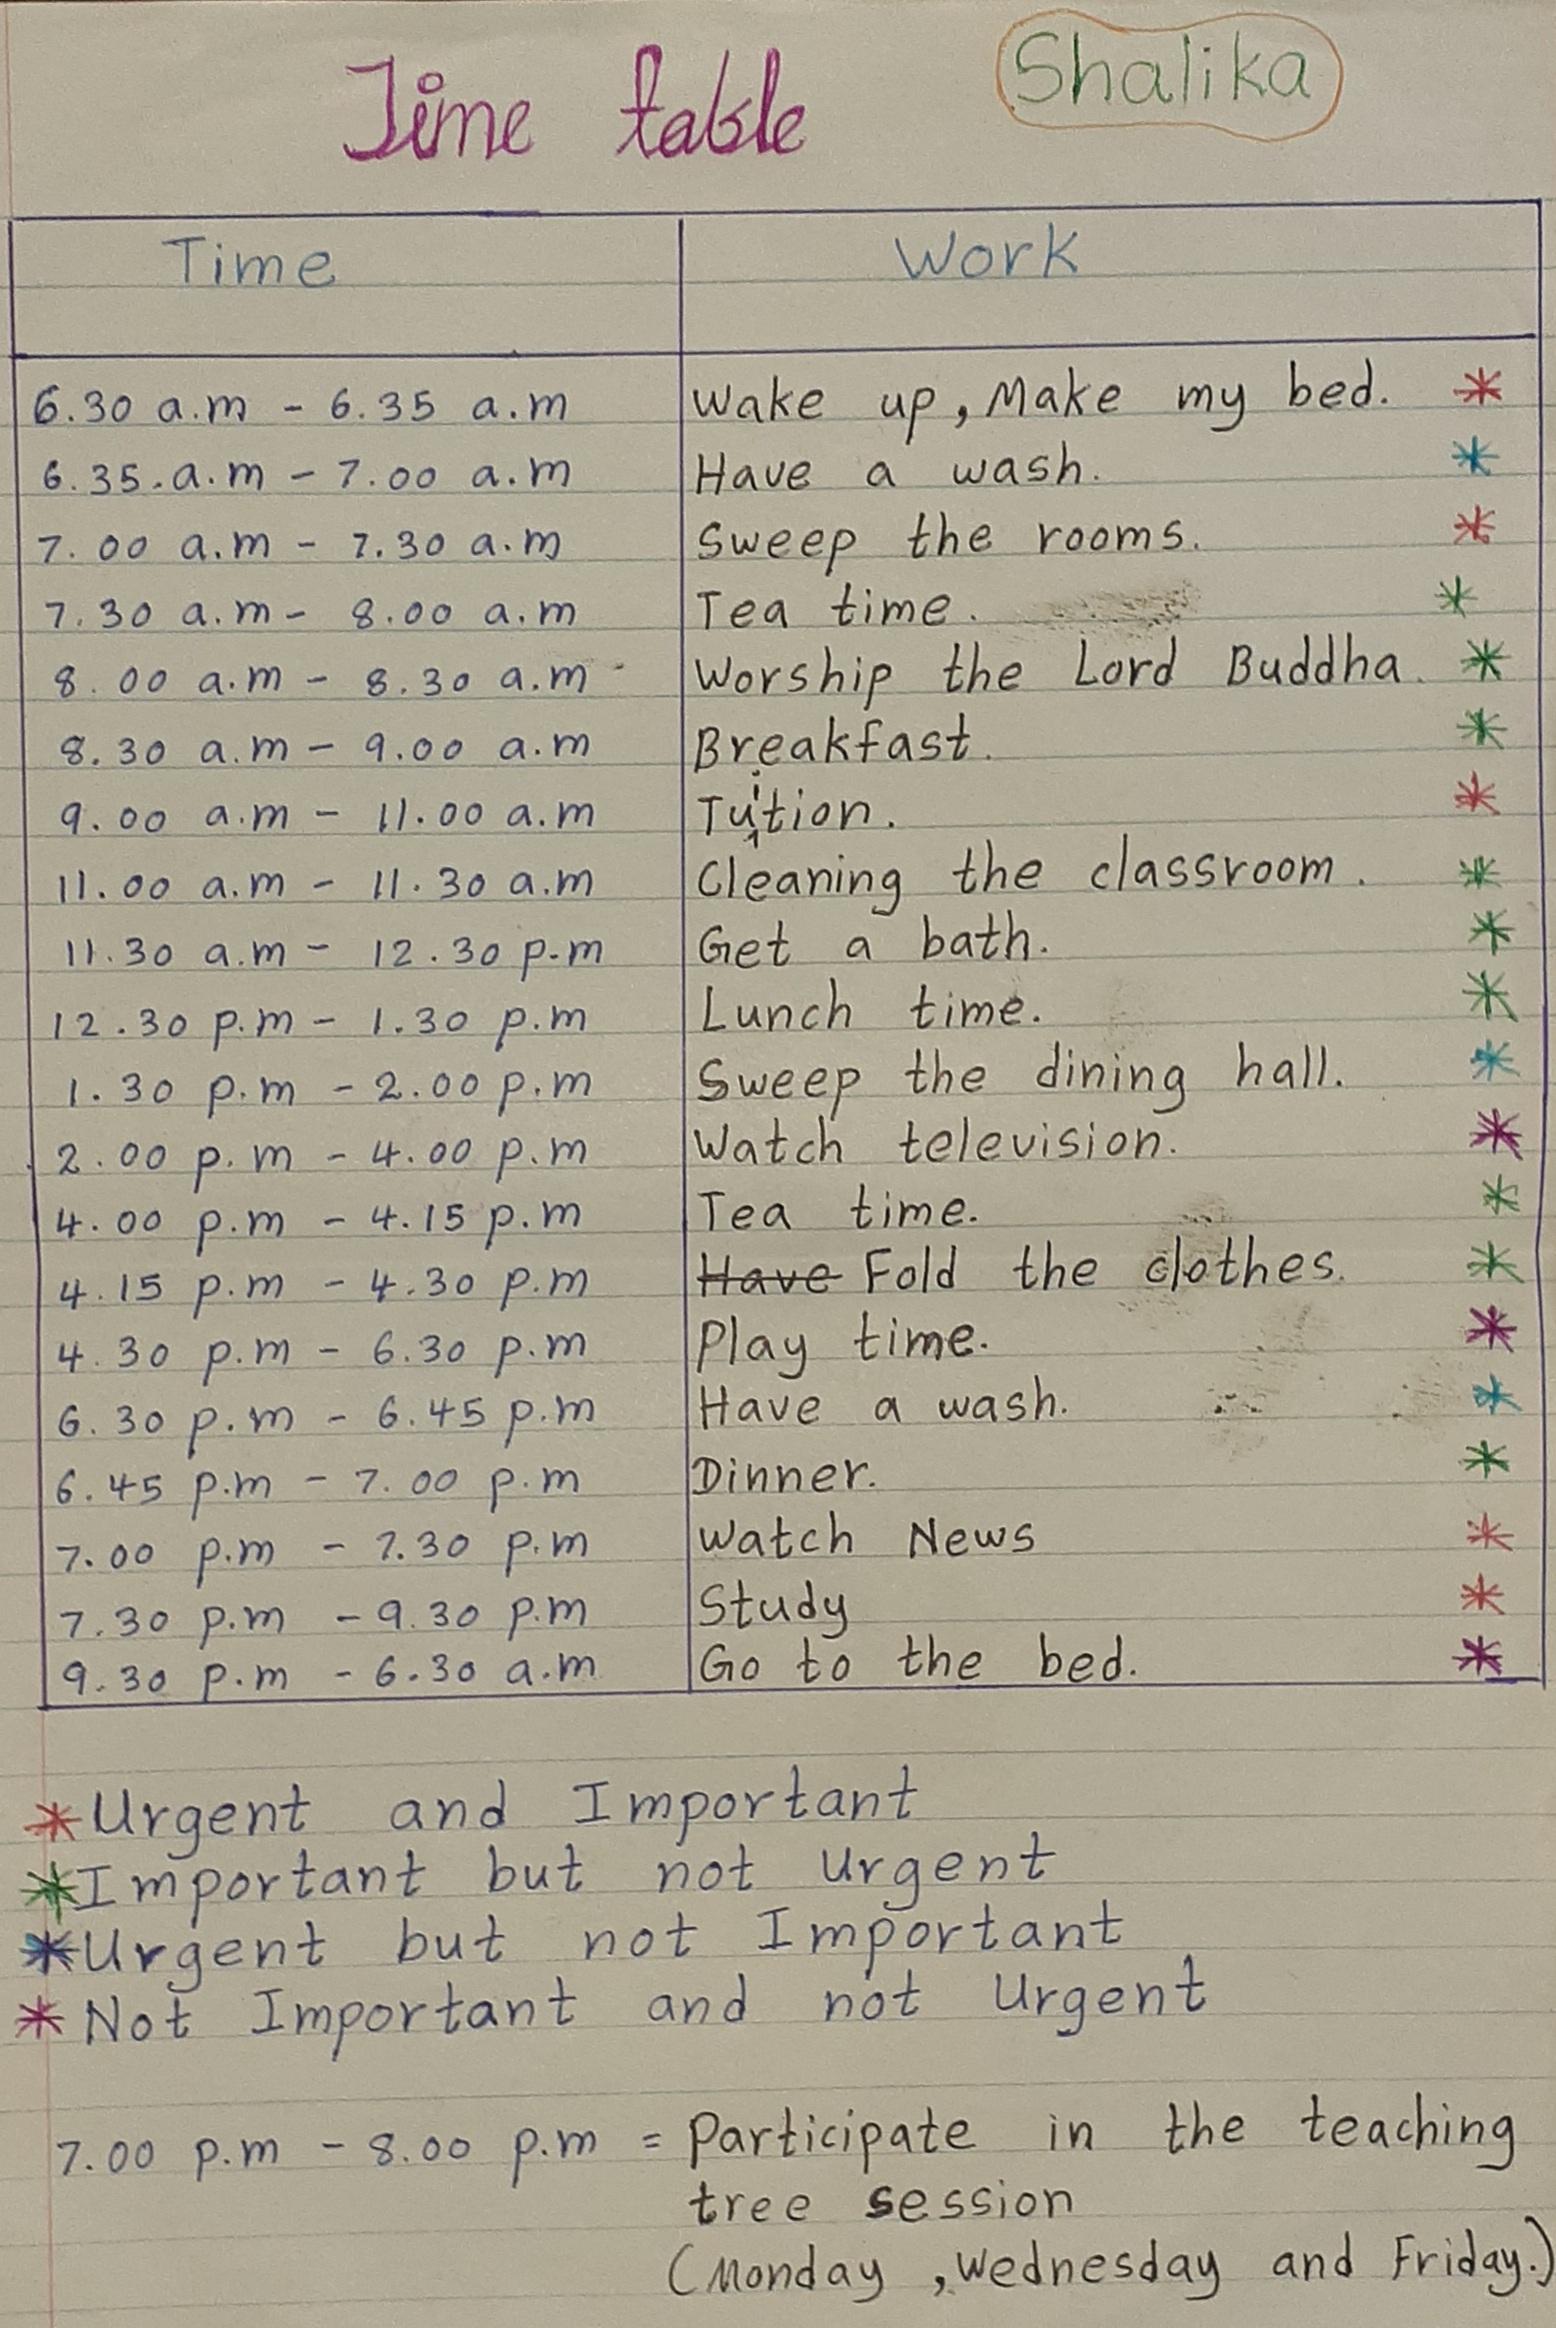 Time table
Shalika
Time Work
6.30 a.m - 6.35 a.m Wake up, Make my bed. *
6.35.a.m - 7.00 a.m Have a wash. *
7.00 a.m - 7.30 a.m Sweep the rooms. *
7.30 a.m - 8.00 a.m Tea time. *
8.00 a.m - 8.30 a.m Worship the Lord Buddha. *
8.30 a.m - 9.00 a.m Breakfast. *
9.00 a.m - 11.00 a.m Tuition. *
11.00 a.m - 11.30 a.m Cleaning the classroom. *
11.30 a.m - 12.30 p.m Get a bath. *
12.30 p.m - 1.30 p.m Lunch time. *
1.30 p.m - 2.00 p.m Sweep the dining hall. *
2.00 p.m - 4.00 p.m Watch television. *
4.00 p.m - 4.15 p.m Tea time. *
4.15 p.m - 4.30 p.m Have Fold the clothes. *
4.30 p.m - 6.30 p.m Play time. *
6.30 p.m - 6.45 p.m Have a wash. *
6.45 p.m - 7.00 p.m Dinner. *
7.00 p.m - 7.30 p.m Watch News *
7.30 p.m - 9.30 p.m Study *
9.30 p.m - 6.30 a.m Go to the bed. *
* Urgent and Important
* Important but not Urgent
* Urgent but not Important
* Not Important and not Urgent
7.00 p.m - 8.00 p.m = Participate in the teaching
tree session
(Monday, Wednesday and Friday.)